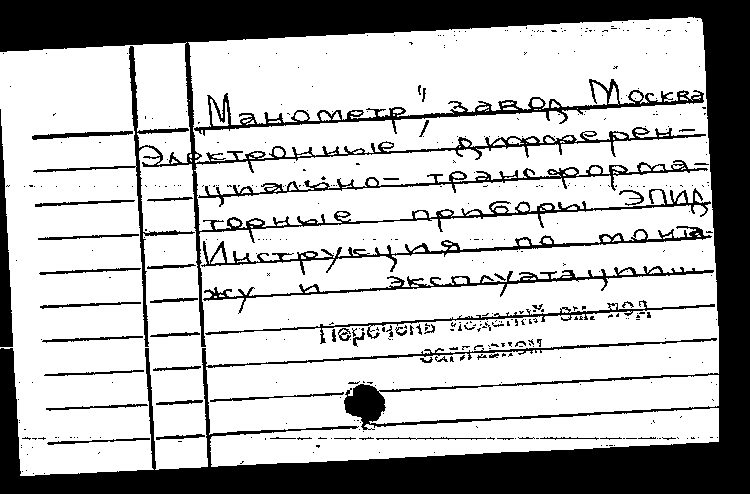 "Манометр", завод. Москва
Электронные дифферен-
циально-трансформа-
торные приборы ЭПИД
Инструкция по монта-
жу и эксплуатации...
Перечень изданий см. под
заглавием